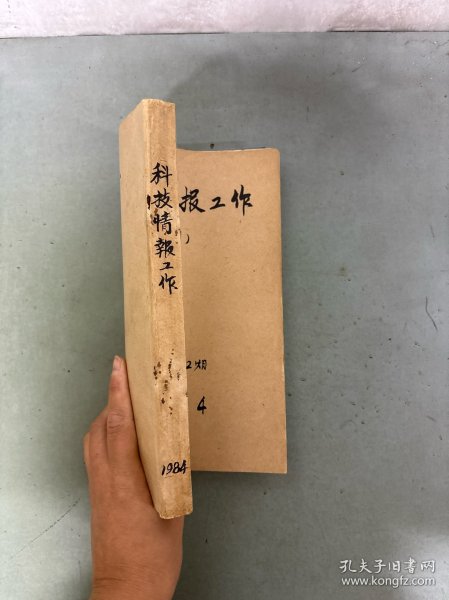 科技情報工作
1984
报工作
)
2期
4
孔夫子旧书网
www.kongfz.com